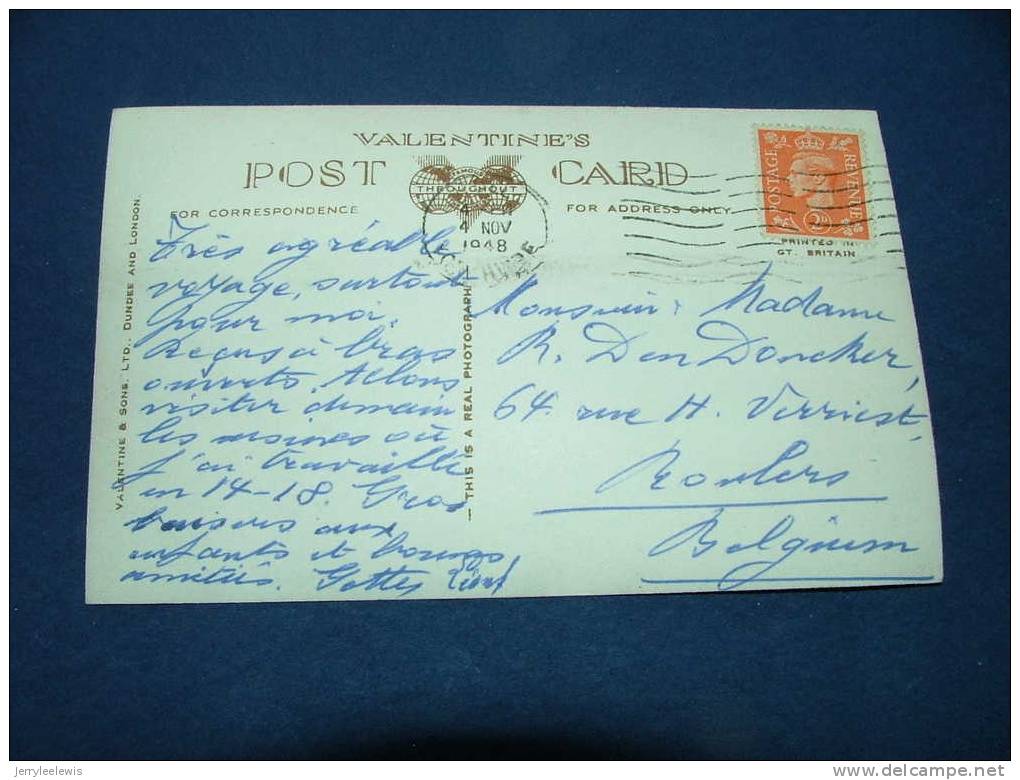 VALENTINE'S
POST CARD
FAMOUS
THROUGHOUT
FOR CORRESPONDENCE
FOR ADDRESS ONLY
4 NOV
1948
POSTAGE
REVENUE
2D
PRINTED IN
GT. BRITAIN
VALENTINE & SONS. LTD., DUNDEE AND LONDON.
THIS IS A REAL PHOTOGRAPH
Très agréable
voyage, surtout
pour moi.
Reçus à bras
ouverts. Allons
visiter demain
les usines où
j'ai travaillé
en 14-18. Gros
baisers aux
enfants et bonnes
amitiés.
Monsieur & Madame
R. Den Doncker,
64 rue H. Verriest,
Roulers
Belgium
jerryleelewis
www.delcampe.net